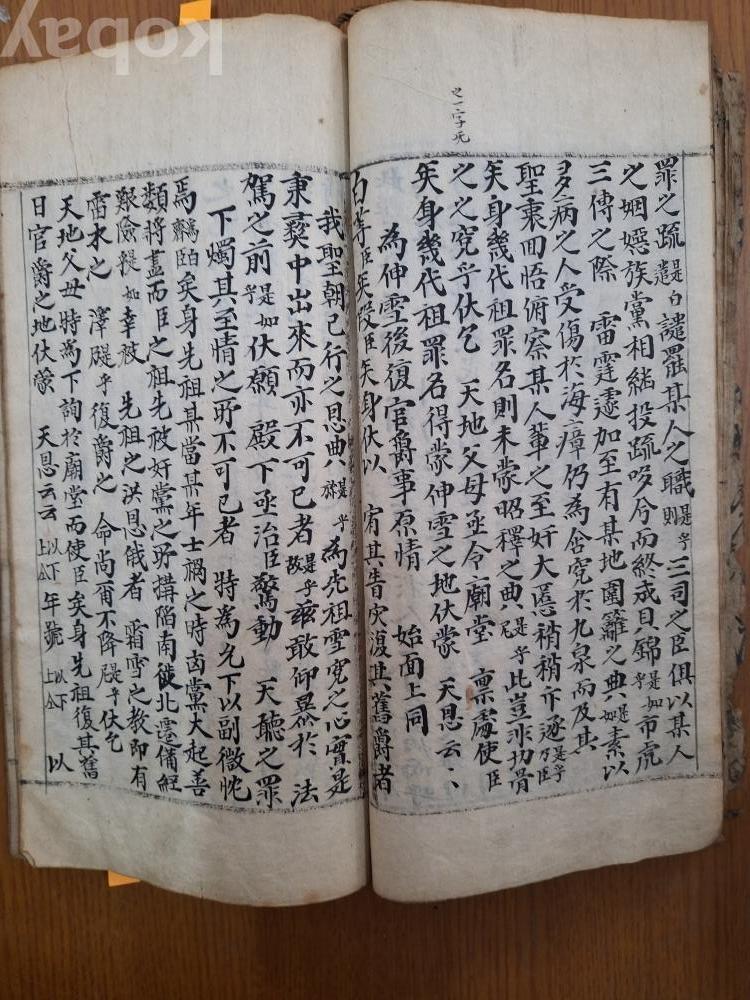 kobay
罪之疏 是白遣 譴罷某人之職 是乎則 三司之臣俱以某人
之姻婭族黨相緖投疏哆兮而終成貝錦 是如 市虎
三傳之際 雷霆遽加至有某地圍籬之典 是如 素以
多病之人受傷於海瘴仍爲含寃於九泉而及其
聖衷回悟俯察某人輩之至奸大慝稍稍斥逐 是乎乃 臣
矣身幾代祖罪名則未蒙昭釋之典 是乎 此豈非切骨
之之寃乎伏乞 天地父母亟令廟堂 稟處使臣
矣身幾代祖罪名得蒙伸雪之地伏蒙 天恩云〻
爲伸雪後復官爵事原情 始面上同
白等臣矣段臣矣身伏以 宥其眚灾復其舊爵者
我聖朝已行之恩典 是乎 爲先祖雪寃之心實是
秉彛中出來而亦不可已者 是乎 玆敢仰暴於 法
駕之前 是如乎 伏願 殿下亟治臣驚動 天聽之罪
下燭其至情之所不可已者 特爲允下以副微忱
焉 白 臣 矣身先祖某當某年士禍之時凶黨大起善
類將盡而臣之祖先被奸黨之所搆陷南徙北遷備經
艱險 是如 幸被 先祖之洪恩俄者 霜雪之教卽有
雷水之 澤 是乎 復爵之 命尙爾不降 是乎 伏乞
天地父母特爲下詢於廟堂而使臣矣身先祖復其舊
日官爵之地伏蒙 天恩云云 以下上仝 年號 以下上仝 以